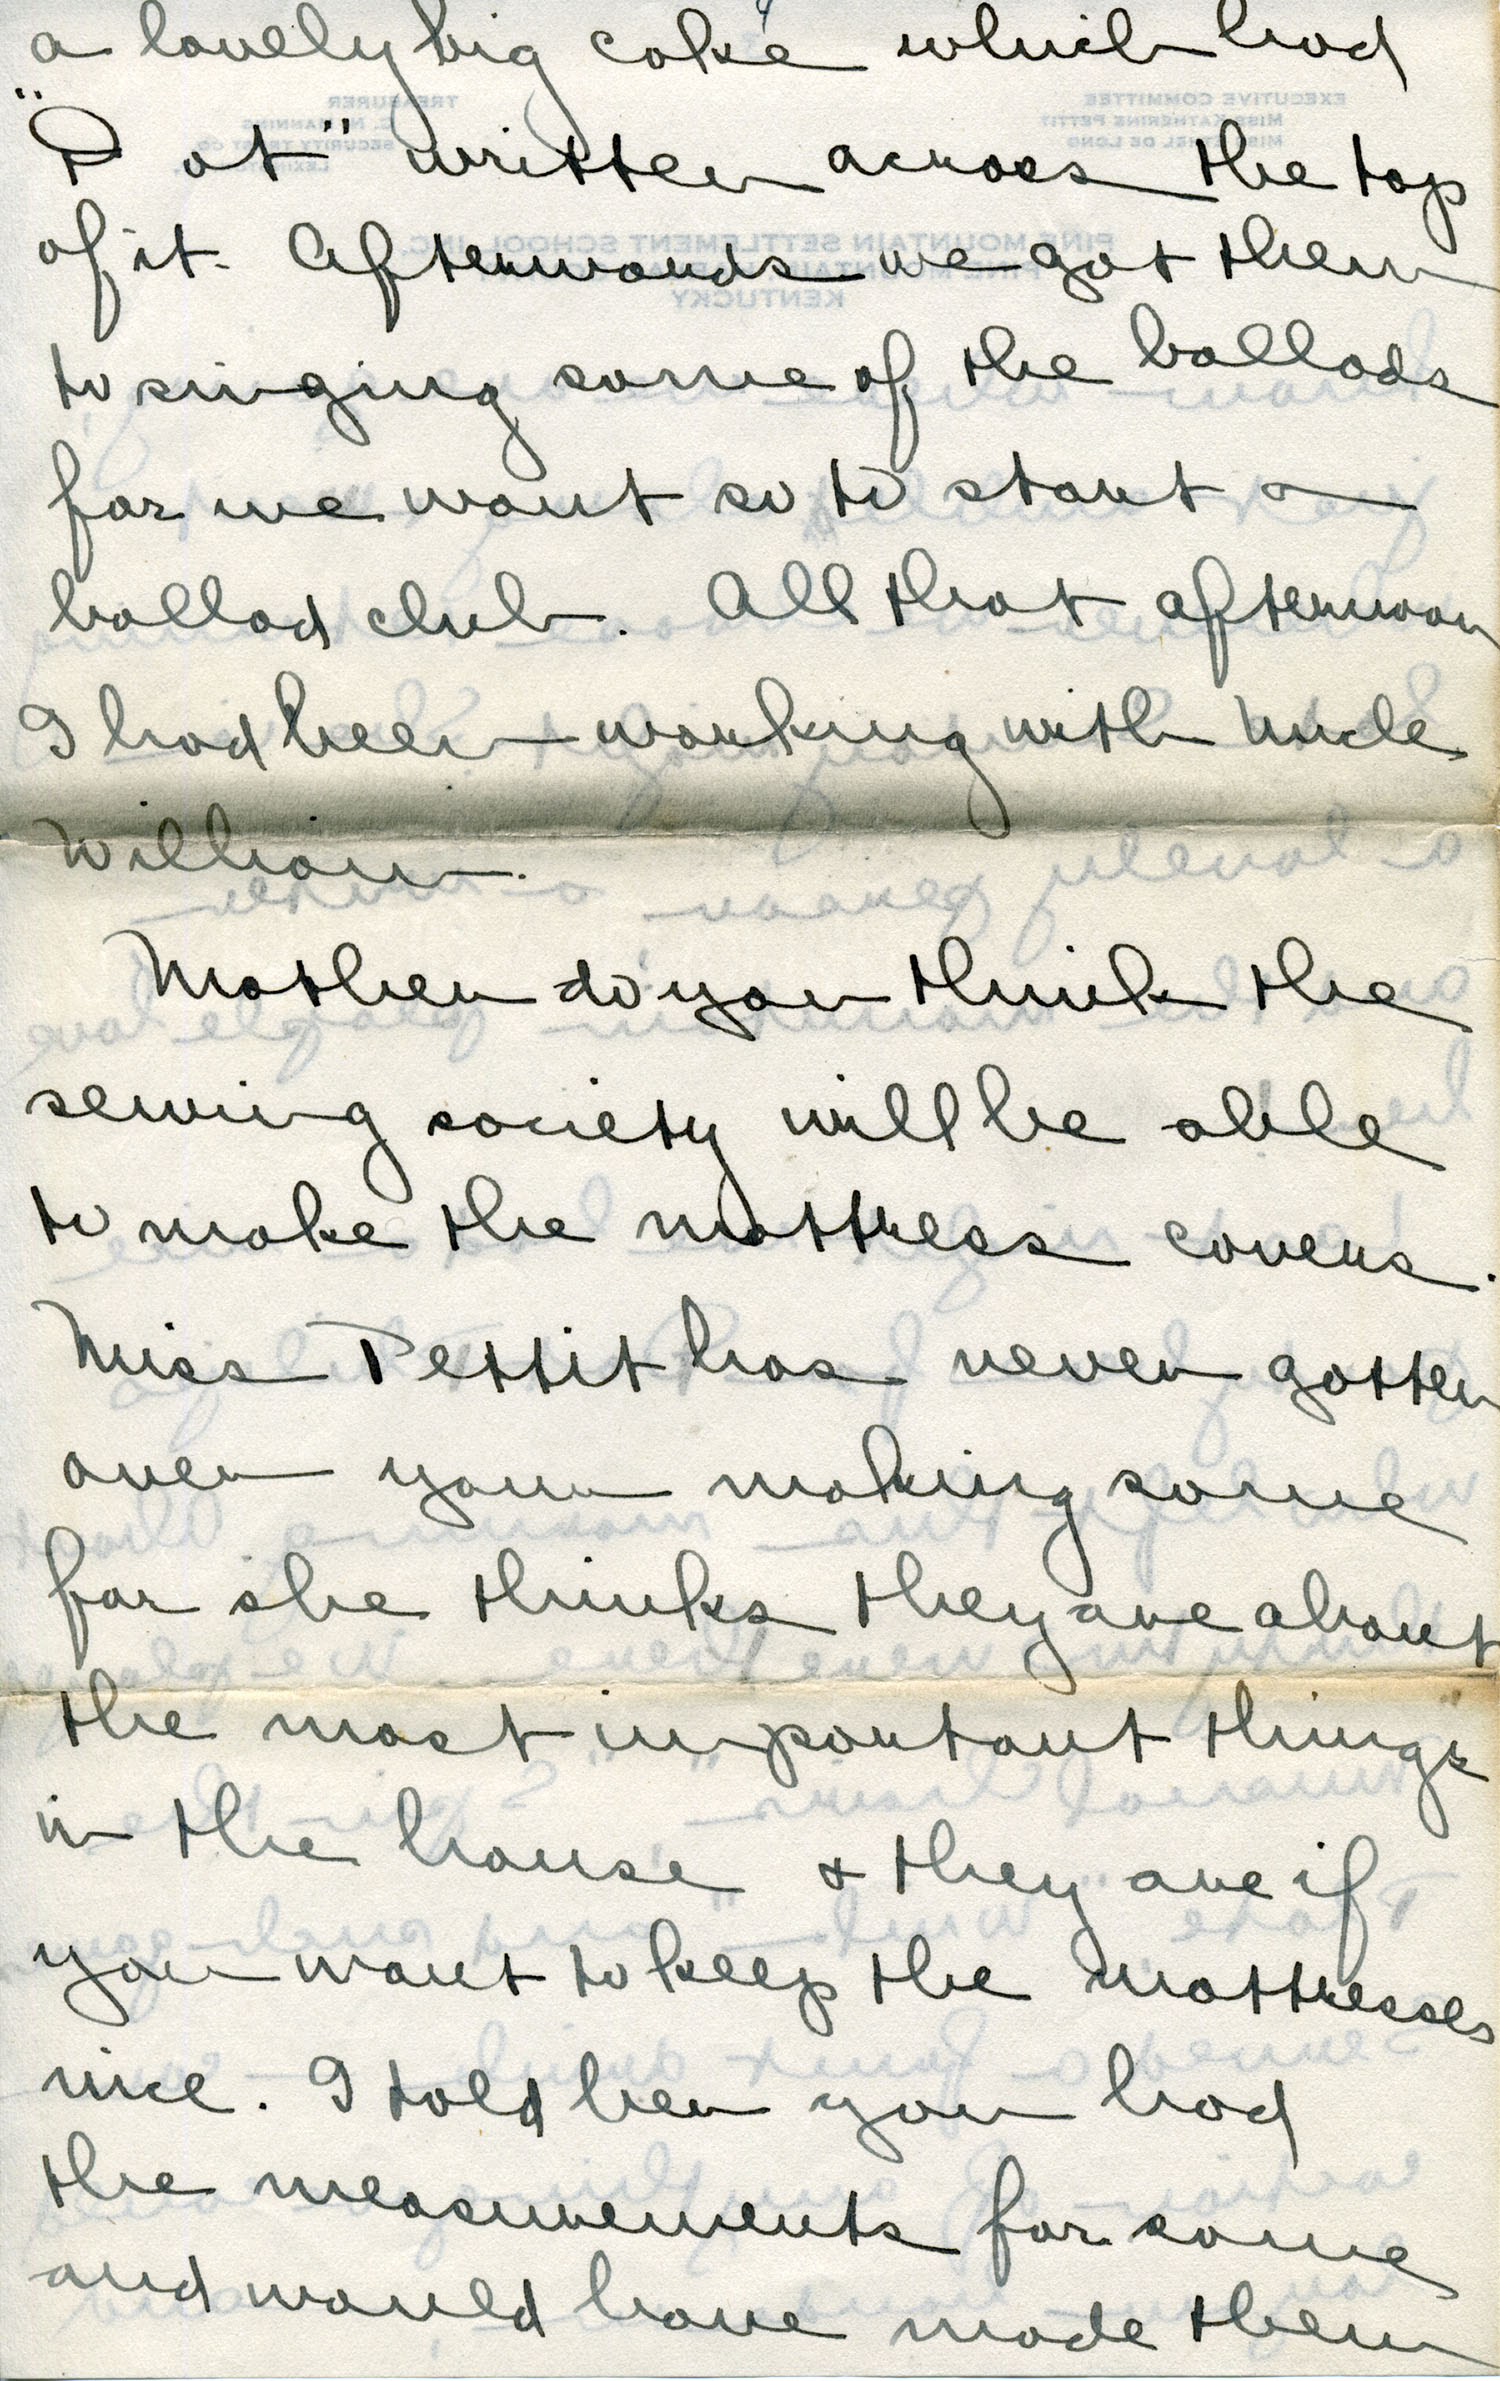 a lovely big cake which had
"Pat" written across the top
of it. Afterwards we got them
to singing some of the ballads
for we want so to start a
ballad club. All that afternoon
I had been working with Uncle
William.
Mother do you think the
sewing society will be able
to make the mattress covers.
Miss Pettit has never gotten
over your making some
for she thinks they are about
the most important things
in the house & they are if
you want to keep the mattresses
nice. I told her you had
the measurements for some
and would have made them